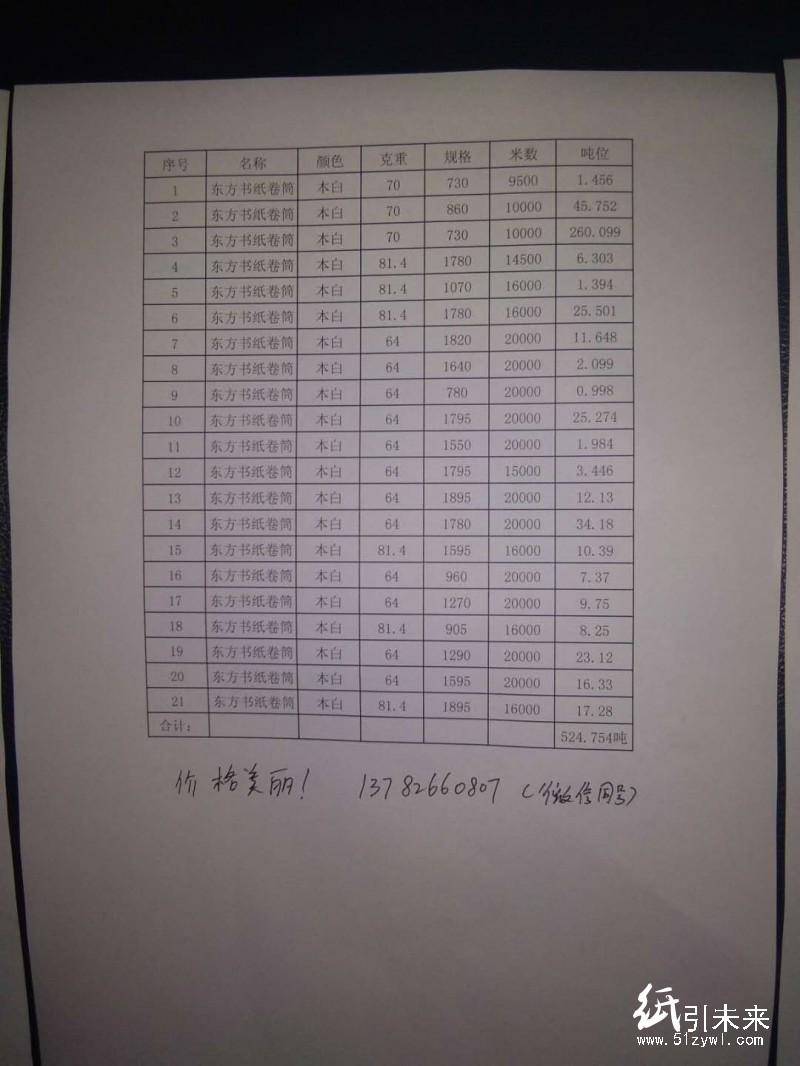 序号 名称 颜色 克重 规格 米数 吨位
1 东方书纸卷筒 本白 70 730 9500 1.456
2 东方书纸卷筒 本白 70 860 10000 45.752
3 东方书纸卷筒 本白 70 730 10000 260.099
4 东方书纸卷筒 本白 81.4 1780 14500 6.303
5 东方书纸卷筒 本白 81.4 1070 16000 1.394
6 东方书纸卷筒 本白 81.4 1780 16000 25.501
7 东方书纸卷筒 本白 64 1820 20000 11.648
8 东方书纸卷筒 本白 64 1640 20000 2.099
9 东方书纸卷筒 本白 64 780 20000 0.998
10 东方书纸卷筒 本白 64 1795 20000 25.274
11 东方书纸卷筒 本白 64 1550 20000 1.984
12 东方书纸卷筒 本白 64 1795 15000 3.446
13 东方书纸卷筒 本白 64 1895 20000 12.13
14 东方书纸卷筒 本白 64 1780 20000 34.18
15 东方书纸卷筒 本白 81.4 1595 16000 10.39
16 东方书纸卷筒 本白 64 960 20000 7.37
17 东方书纸卷筒 本白 64 1270 20000 9.75
18 东方书纸卷筒 本白 81.4 905 16000 8.25
19 东方书纸卷筒 本白 64 1290 20000 23.12
20 东方书纸卷筒 本白 64 1595 20000 16.33
21 东方书纸卷筒 本白 81.4 1895 16000 17.28
合计: 524.754吨
价格美丽! 13782660807 (微信同号)
纸引未来
www.51zywl.com